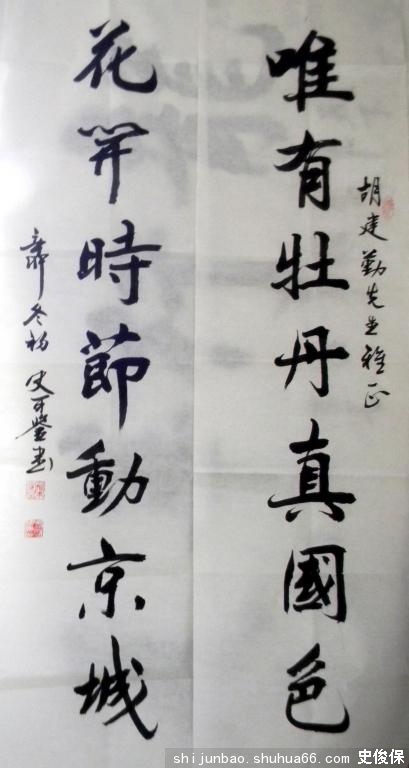 胡建勤先生雅正
唯有牡丹真國色
花開時節動京城
辛卯冬初 史可鑒书
shijunbao.shuhua66.com 史俊保